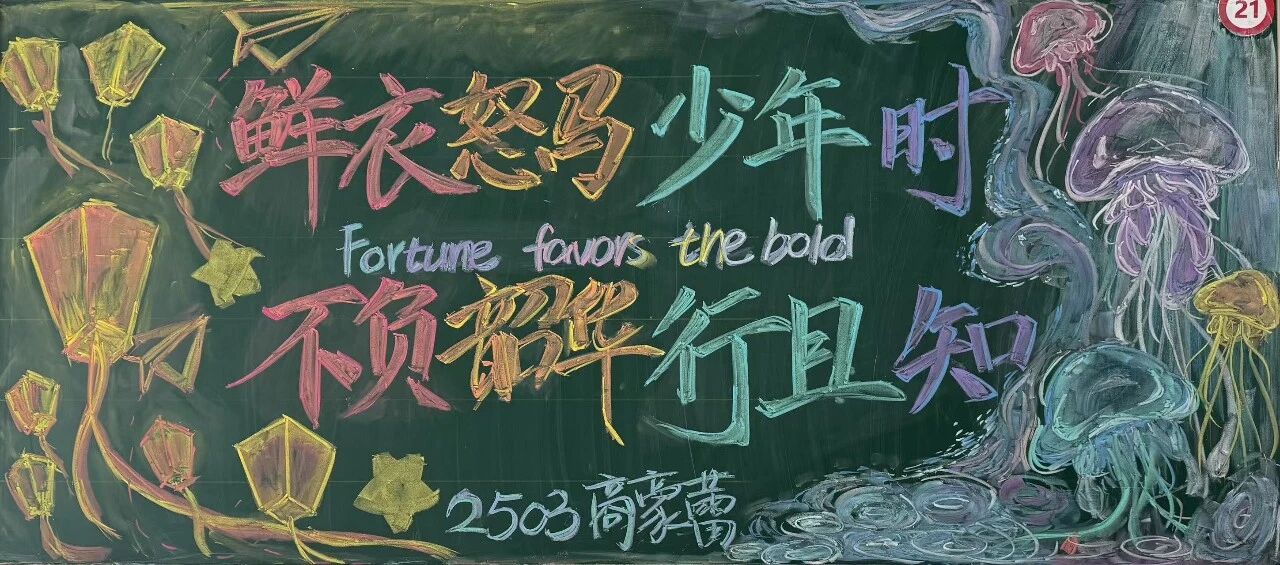 21
鲜衣怒马少年时
Fortune favors the bold
不负韶华行且知
2503商豪蕾